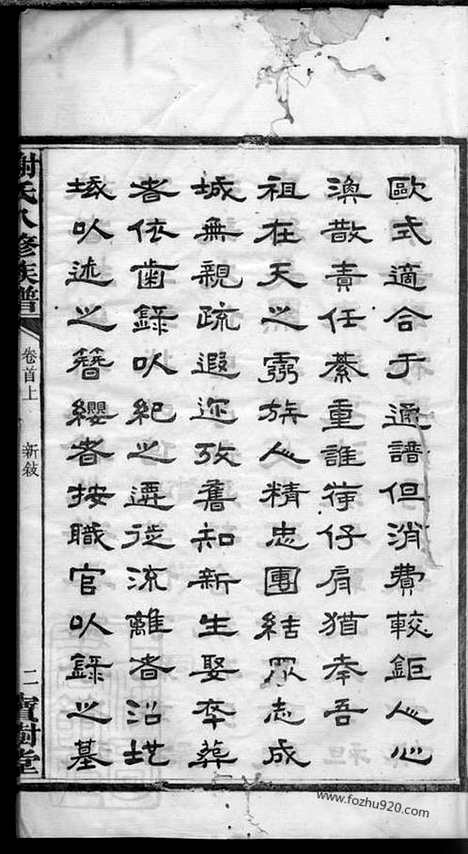 歐式適合于通譜但消費較鉅人心
渙散責任綦重誰荷仔肩猶幸吾
祖在天之靈族人精忠團結眾志成
城無親疏遐迩攷舊知新生娶卒葬
者依齒錄以紀之遷徙流離者沿堪
域以述之簪纓者按職官以錄之墓
謝氏八修族譜
卷首上
新敘
二
寶樹堂
www.fozhu920.com